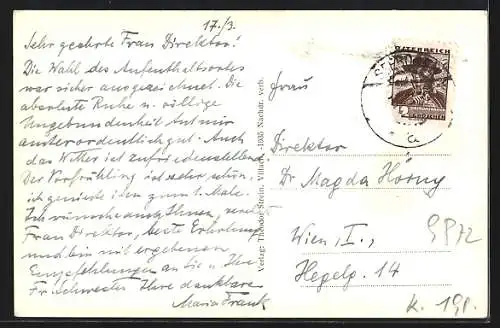 17./3.
Sehr geehrte Frau Direktor!
Die Wahl des Aufenthaltsortes
war sicher ausgezeichnet. Die
absolute Ruhe u. völlige
Ungebundenheit tut mir
ausserordentlich gut. Auch
das Wetter ist zufriedenstellend.
Der Vorfrühling ist sehr schön,
ich geniesse ihn zum 1. Male.
Ich wünsche auch Ihnen,
Frau Direktor, beste Erholung
und bin mit ergebenen
Empfehlungen an Sie u. Ihre
Fr. Schwester Ihre dankbare
Maria Frank
Verlag: Theodor Stein, Villach, -1935 Nachdr. verb.
ÖSTERREICH
GROSCHEN
Frau
Direktor
Dr Magda Hörny
Wien, I.,
Hegelg. 14
K. 198.